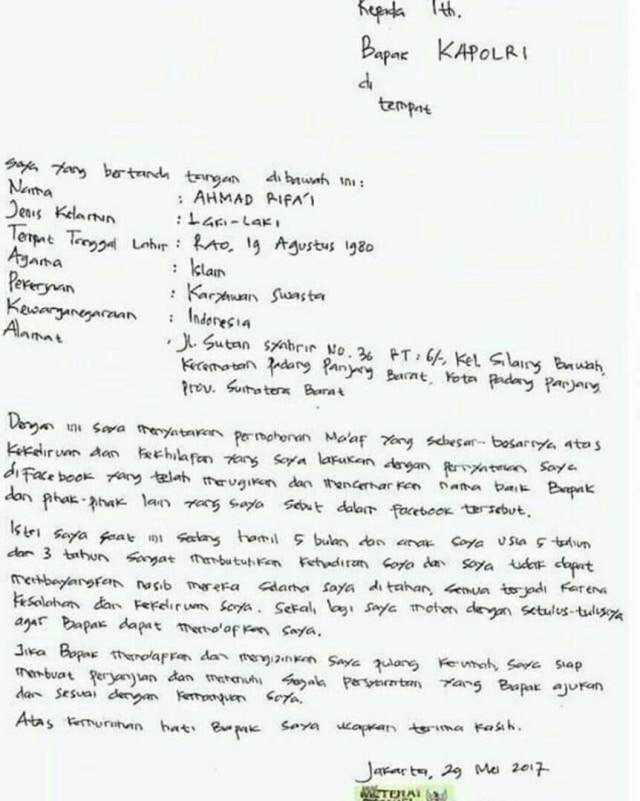 Kepada Yth.
Bapak KAPOLRI
di
tempat
Saya yang bertanda tangan dibawah ini:
Nama : AHMAD RIFA'I
Jenis Kelamin : Laki-Laki
Tempat Tanggal Lahir : RAO, 19 Agustus 1980
Agama : Islam
Pekerjaan : Karyawan Swasta
Kewarganegaraan : Indonesia
Alamat : Jl. Sutan Syahrir No. 36 RT: 6/-, Kel. Silaing Bawah,
Kecamatan Padang Panjang Barat, Kota Padang Panjang
Prov. Sumatera Barat
Dengan ini saya menyatakan permohonan Ma'af yang sebesar-besarnya atas
kekeliruan dan kekhilafan yang saya lakukan dengan pernyataan saya
di Facebook yang telah merugikan dan mencemarkan nama baik Bapak
dan pihak-pihak lain yang saya sebut dalam facebook tersebut.
Istri saya saat ini sedang hamil 5 bulan dan anak saya usia 5 tahun
dan 3 tahun sangat membutuhkan kehadiran saya dan saya tidak dapat
membayangkan nasib mereka selama saya ditahan, semua terjadi karena
kesalahan dan kekeliruan saya. Sekali lagi saya mohon dengan setulus-tulusnya
agar Bapak dapat mema'afkan saya.
Jika Bapak mema'afkan dan mengizinkan saya pulang kerumah, saya siap
membuat perjanjian dan memenuhi segala persyaratan yang Bapak ajukan
dan sesuai dengan kemampuan saya.
Atas kemurahan hati Bapak saya ucapkan terima kasih.
Jakarta, 29 Mei 2017
METERAI